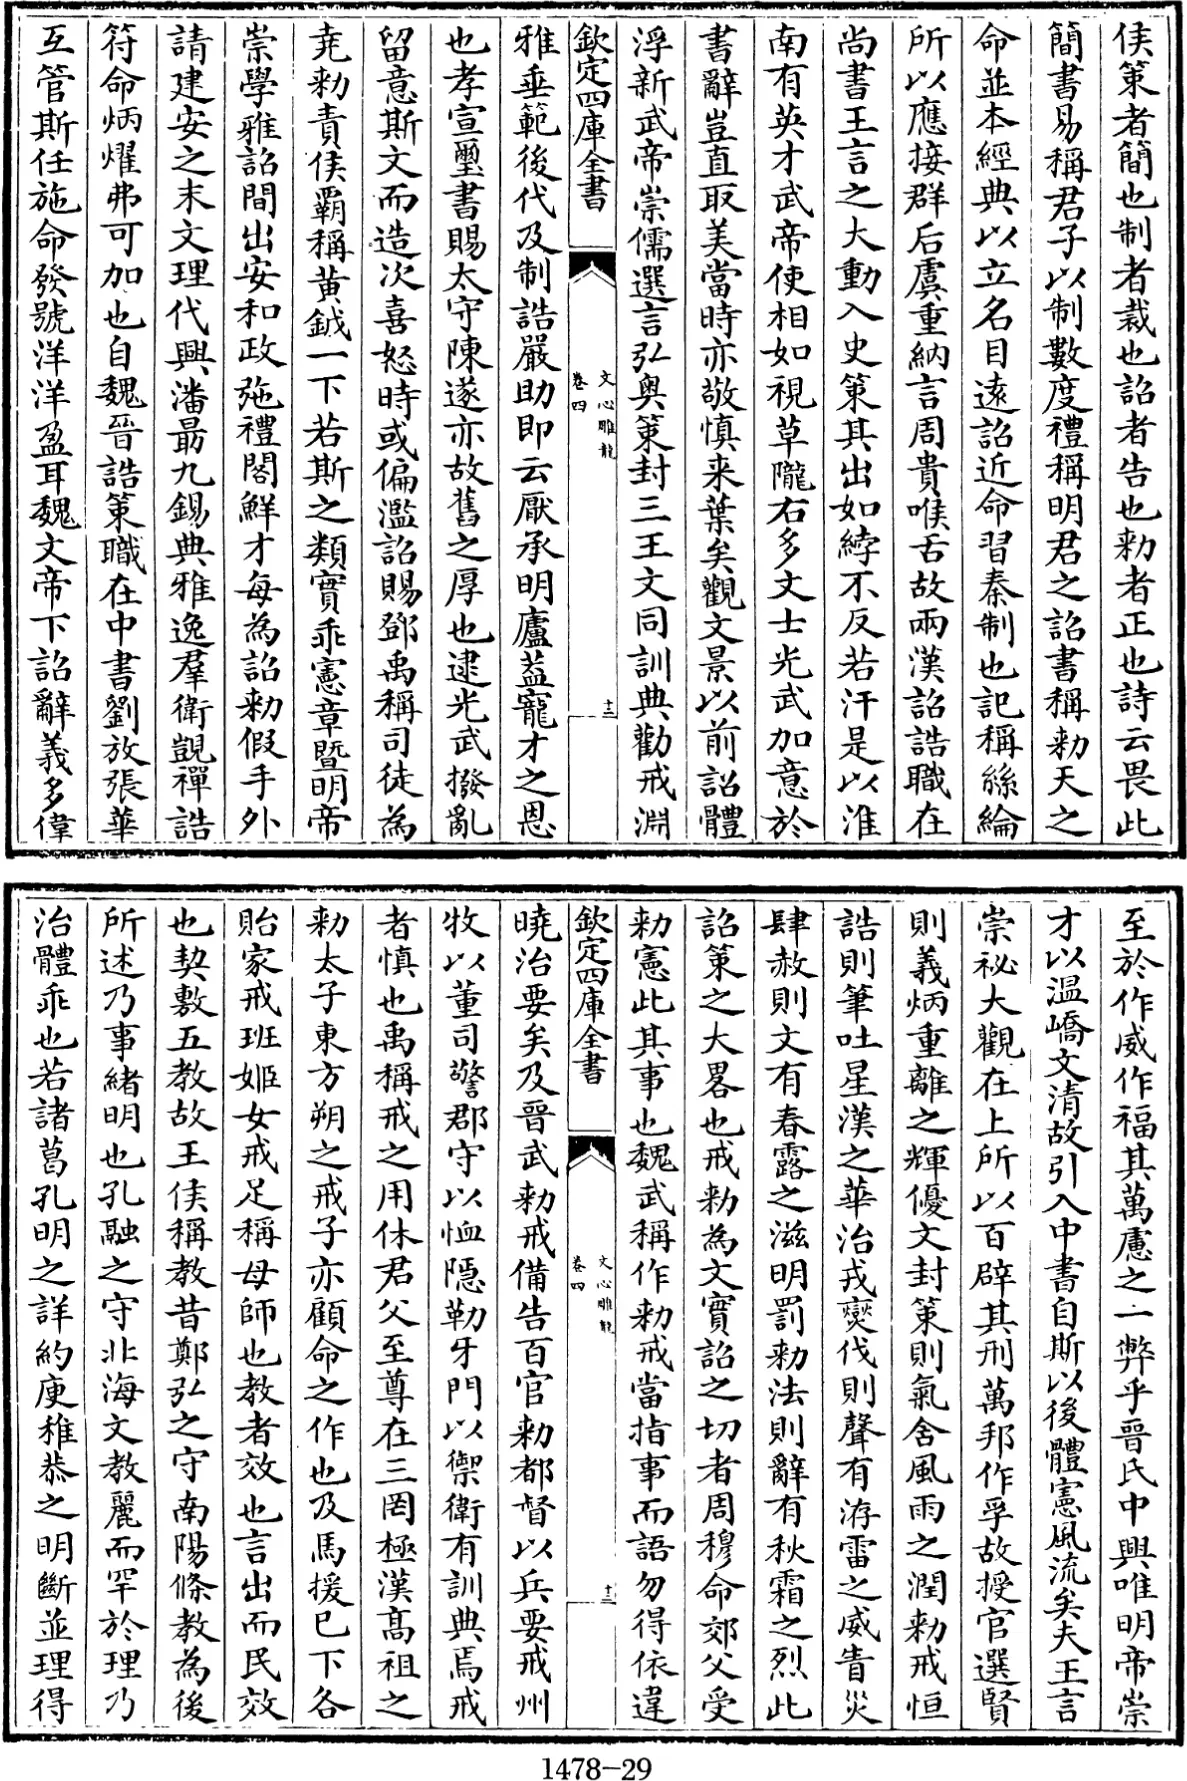 侯策者簡也制者裁也詔者告也勅者正也詩云畏此
簡書易稱君子以制數度禮稱明君之詔書稱勅天之
命並本經典以立名目遠詔近命習秦制也記稱絲綸
所以應接群后虞重納言周貴喉舌故兩漢詔誥職在
尚書王言之大動入史策其出如綍不反若汗是以淮
南有英才武帝使相如視草隴右多文士光武加意於
書辭豈直取美當時亦敬慎来葉矣觀文景以前詔體
浮新武帝崇儒選言弘奥策封三王文同訓典勸戒淵
欽定四庫全書
文心雕龍
卷四
十二
雅垂範後代及制誥嚴助即云厭承明廬葢寵才之恩
也孝宣璽書賜太守陳遂亦故舊之厚也逮光武撥亂
留意斯文而造次喜怒時或偏濫詔賜鄧禹稱司徒為
堯勅責侯霸稱黄鉞一下若斯之類實乖憲章暨明帝
崇學雅詔間出安和政弛禮閣鮮才每為詔勅假手外
請建安之末文理代興潘朂九錫典雅逸羣衛覬禪誥
符命炳燿弗可加也自魏晉誥策職在中書劉放張華
互管斯任施命發號洋洋盈耳魏文帝下詔辭義多偉
至於作威作福其萬慮之一弊乎晉氏中興唯明帝崇
才以温嶠文清故引入中書自斯以後體憲風流矣夫王言
崇祕大觀在上所以百辟其刑萬邦作孚故授官選賢
則義炳重離之輝優文封策則氣含風雨之潤勅戒恒
誥則筆吐星漢之華治戎燮伐則聲有洊雷之威眚災
肆赦則文有春露之滋明罰勅法則辭有秋霜之烈此
詔策之大畧也戒勅為文實詔之切者周穆命郊父受
勅憲此其事也魏武稱作勅戒當指事而語勿得依違
欽定四庫全書
文心雕龍
卷四
十三
曉治要矣及晉武勅戒備告百官勅都督以兵要戒州
牧以董司警郡守以恤隱勒牙門以禦衛有訓典焉戒
者慎也禹稱戒之用休君父至尊在三罔極漢髙祖之
勅太子東方朔之戒子亦顧命之作也及馬援已下各
貽家戒班姬女戒足稱母師也教者效也言出而民效
也契敷五教故王侯稱教昔鄭弘之守南陽條教為後
所述乃事緒明也孔融之守北海文教麗而罕於理乃
治體乖也若諸葛孔明之詳約庾稚恭之明斷並理得
1478-29